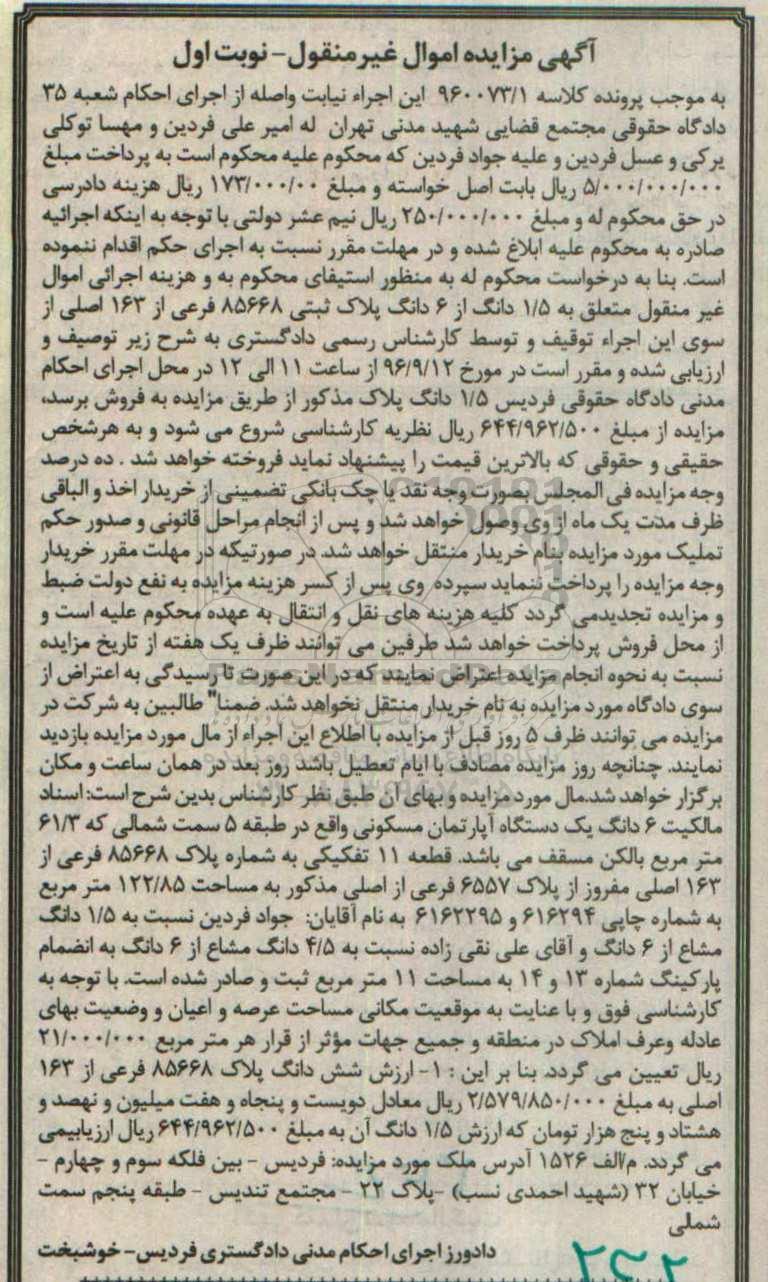 آگهی مزایده اموال غیر منقول - نوبت اول
به موجب پرونده کلاسه ۹۶۰۰۷۳/۱ این اجراء نیابت واصله از اجرای احکام شعبه ۳۵
دادگاه حقوقی مجتمع قضایی شهید مدنی تهران له امیر علی فردین و مهسا توکلی
یرکی و عسل فردین و علیه جواد فردین که محکوم علیه محکوم است به پرداخت مبلغ
۵/۰۰۰/۰۰۰/۰۰۰ ریال بابت اصل خواسته و مبلغ ۱۷۳/۰۰۰/۰۰ ریال هزینه دادرسی
در حق محکوم له و مبلغ ۲۵۰/۰۰۰/۰۰۰ ریال نیم عشر دولتی با توجه به اینکه اجرائیه
صادره به محکوم علیه ابلاغ شده و در مهلت مقرر نسبت به اجرای حکم اقدام ننموده
است. بنا به درخواست محکوم له به منظور استیفای محکوم به و هزینه اجرائی اموال
غیر منقول متعلق به ۱/۵ دانگ از ۶ دانگ پلاک ثبتی ۸۵۶۶۸ فرعی از ۱۶۳ اصلی از
سوی این اجراء توقیف و توسط کارشناس رسمی دادگستری به شرح زیر توصیف و
ارزیابی شده و مقرر است در مورخ ۹۶/۹/۱۲ از ساعت ۱۱ الی ۱۲ در محل اجرای احکام
مدنی دادگاه حقوقی فردیس ۱/۵ دانگ پلاک مذکور از طریق مزایده به فروش برسد،
مزایده از مبلغ ۶۴۴/۹۶۲/۵۰۰ ریال نظریه کارشناسی شروع می شود و به هرشخص
حقیقی و حقوقی که بالاترین قیمت را پیشنهاد نماید فروخته خواهد شد . ده درصد
وجه مزایده فی المجلس بصورت وجه نقد یا چک بانکی تضمینی از خریدار اخذ و الباقی
ظرف مدت یک ماه از وی وصول خواهد شد و پس از انجام مراحل قانونی و صدور حکم
تملیک مورد مزایده بنام خریدار منتقل خواهد شد. در صورتیکه در مهلت مقرر خریدار
وجه مزایده را پرداخت ننماید سپرده وی پس از کسر هزینه مزایده به نفع دولت ضبط
و مزایده تجدیدمی گردد کلیه هزینه های نقل و انتقال به عهده محکوم علیه است و
از محل فروش پرداخت خواهد شد طرفین می توانند ظرف یک هفته از تاریخ مزایده
نسبت به نحوه انجام مزایده اعتراض نمایند که در این صورت تا رسیدگی به اعتراض از
سوی دادگاه مورد مزایده به نام خریدار منتقل نخواهد شد. ضمنا" طالبین به شرکت در
مزایده می توانند ظرف ۵ روز قبل از مزایده با اطلاع این اجراء از مال مورد مزایده بازدید
نمایند. چنانچه روز مزایده مصادف با ایام تعطیل باشد روز بعد در همان ساعت و مکان
برگزار خواهد شد.مال مورد مزایده و بهای آن طبق نظر کارشناس بدین شرح است: اسناد
مالکیت ۶ دانگ یک دستگاه آپارتمان مسکونی واقع در طبقه ۵ سمت شمالی که ۶۱/۳
متر مربع بالکن مسقف می باشد. قطعه ۱۱ تفکیکی به شماره پلاک ۸۵۶۶۸ فرعی از
۱۶۳ اصلی مفروز از پلاک ۶۵۵۷ فرعی از اصلی مذکور به مساحت ۱۲۲/۸۵ متر مربع
به شماره چاپی ۶۱۶۲۹۴ و ۶۱۶۲۲۹۵ به نام آقایان: جواد فردین نسبت به ۱/۵ دانگ
مشاع از ۶ دانگ و آقای علی نقی زاده نسبت به ۴/۵ دانگ مشاع از ۶ دانگ به انضمام
پارکینگ شماره ۱۳ و ۱۴ به مساحت ۱۱ متر مربع ثبت و صادر شده است. با توجه به
کارشناسی فوق و با عنایت به موقعیت مکانی مساحت عرصه و اعیان و وضعیت بهای
عادله وعرف املاک در منطقه و جمیع جهات مؤثر از قرار هر متر مربع ۲۱/۰۰۰/۰۰۰
ریال تعیین می گردد. بنا بر این : ۱- ارزش شش دانگ پلاک ۸۵۶۶۸ فرعی از ۱۶۳
اصلی به مبلغ ۲/۵۷۹/۸۵۰/۰۰۰ ریال معادل دویست و پنجاه و هفت میلیون و نهصد و
هشتاد و پنج هزار تومان که ارزش ۱/۵ دانگ آن به مبلغ ۶۴۴/۹۶۲/۵۰۰ ریال ارزیابیمی
می گردد. م/الف ۱۵۲۶ آدرس ملک مورد مزایده: فردیس - بین فلکه سوم و چهارم -
خیابان ۳۲ (شهید احمدی نسب) -پلاک ۲۲ - مجتمع تندیس - طبقه پنجم سمت
شملی
دادورز اجرای احکام مدنی دادگستری فردیس- خوشبخت